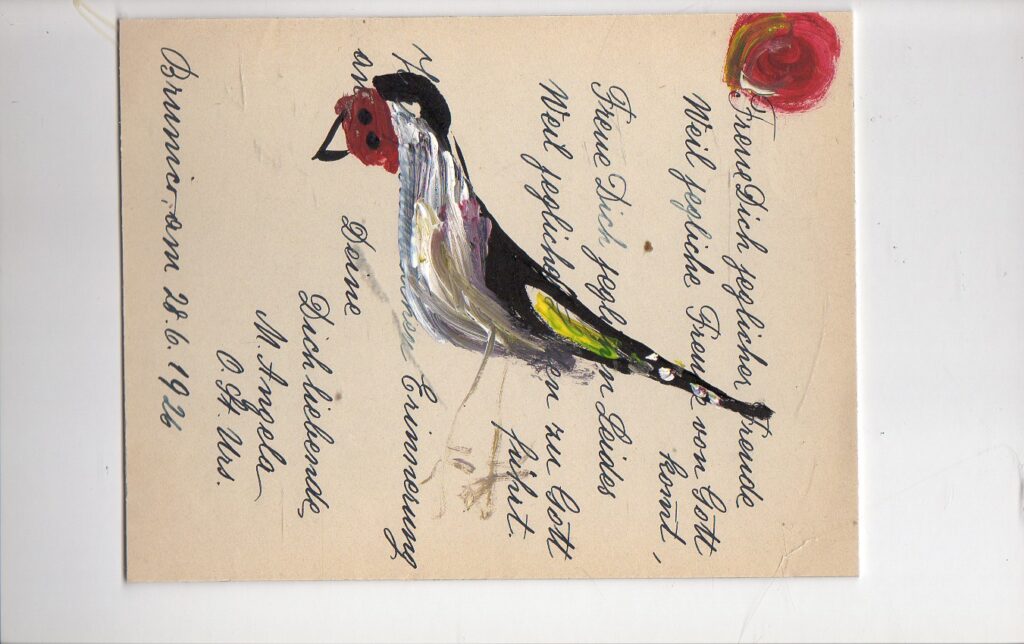 Freue Dich jeglicher Freude
Weil jegliche Freude von Gott
komt,
Freue Dich jeglichen Leides
Weil jegliches Leiden zu Gott
führt.
Erinnerung
an
Deine
Dich liebende
M. Angela
O. St. Urs.
Brunico, am 28.6.1926